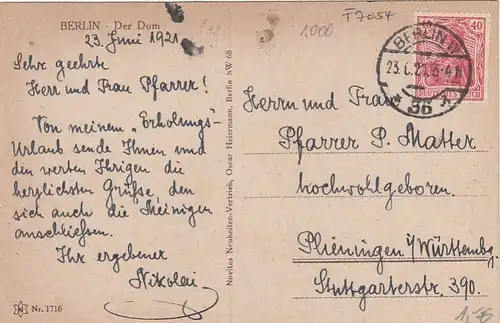 BERLIN - Der Dom
23. Juni 1921
Sehr geehrte
Herr und Frau Pfarrer!
Von meinem "Erholungs"-
Urlaub sende Ihnen und
den werten Ihrigen die
herzlichsten Grüße, den
sich auch die Meinigen
anschließen.
Ihr ergebener
Nikolai
Nr. 1716
Novitas Neuheiten-Vertrieb, Oscar Heiermann, Berlin SW 68
1000
T7054
40
BERLIN W
36
Herrn und Frau
Pfarrer P. Matter
hochwohlgeboren.
Plieningen i/Württembg.
Stuttgarterstr. 390.